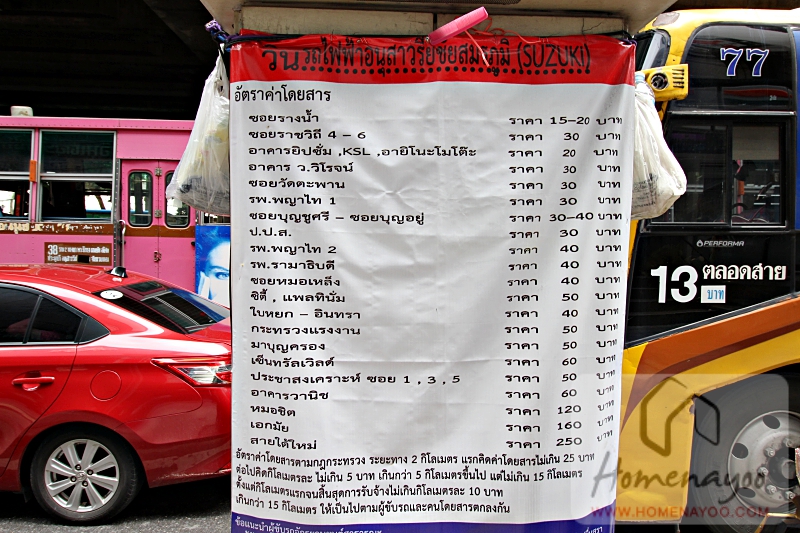 วินรถไฟฟ้าอนุสาวรีย์ชัยสมรภูมิ (SUZUKI)
อัตราค่าโดยสาร
ซอยรางน้ำ ราคา 15-20 บาท
ซอยราชวิถี 4 - 6 ราคา 30 บาท
อาคารยิปซั่ม ,KSL ,อายิโนะโมโต๊ะ ราคา 20 บาท
อาคาร ว.วิโรจน์ ราคา 30 บาท
ซอยวัดตะพาน ราคา 30 บาท
รพ.พญาไท 1 ราคา 30 บาท
ซอยบุญชูศรี - ซอยบุญอยู่ ราคา 30-40 บาท
ป.ป.ส. ราคา 30 บาท
รพ.พญาไท 2 ราคา 40 บาท
รพ.รามาธิบดี ราคา 40 บาท
ซอยหมอเหล็ง ราคา 40 บาท
ซิตี้ , แพลทินั่ม ราคา 50 บาท
ใบหยก - อินทรา ราคา 40 บาท
กระทรวงแรงงาน ราคา 50 บาท
มาบุญครอง ราคา 50 บาท
เซ็นทรัลเวิลด์ ราคา 60 บาท
ประชาสงเคราะห์ ซอย 1 , 3 , 5 ราคา 50 บาท
อาคารวานิช ราคา 60 บาท
หมอชิต ราคา 120 บาท
เอกมัย ราคา 160 บาท
สายใต้ใหม่ ราคา 250 บาท
อัตราค่าโดยสารตามกฎกระทรวง ระยะทาง 2 กิโลเมตร แรกคิดค่าโดยสารไม่เกิน 25 บาท
ต่อไปคิดกิโลเมตรละ ไม่เกิน 5 บาท เกินกว่า 5 กิโลเมตรขึ้นไป แต่ไม่เกิน 15 กิโลเมตร
ตั้งแต่กิโลเมตรแรกจนสิ้นสุดการรับจ้างไม่เกินกิโลเมตรละ 10 บาท
เกินกว่า 15 กิโลเมตร ให้เป็นไปตามผู้ขับรถและคนโดยสารตกลงกัน
77
PERFORMA
13 ตลอดสาย
บาท
38
Homenayoo
WWW.HOMENAYOO.COM